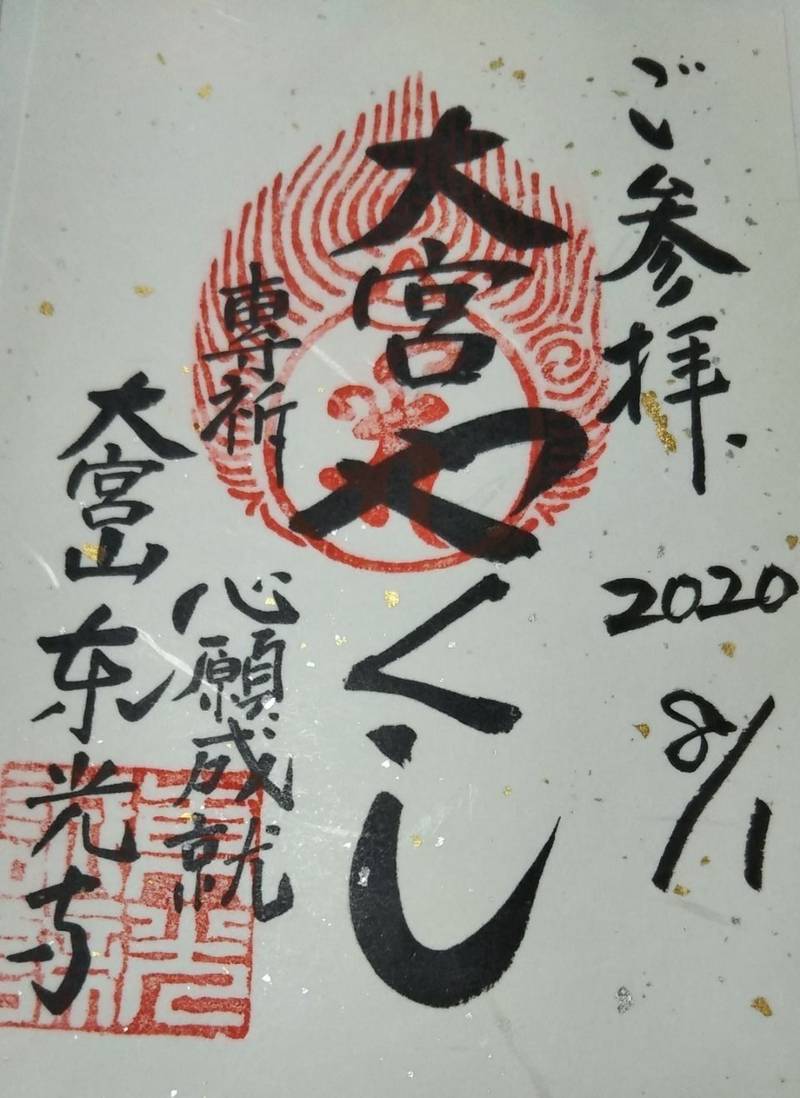 ご参拝
2020
8/1
大宮やくし
専祈
心願成就
大宮山
东光寺